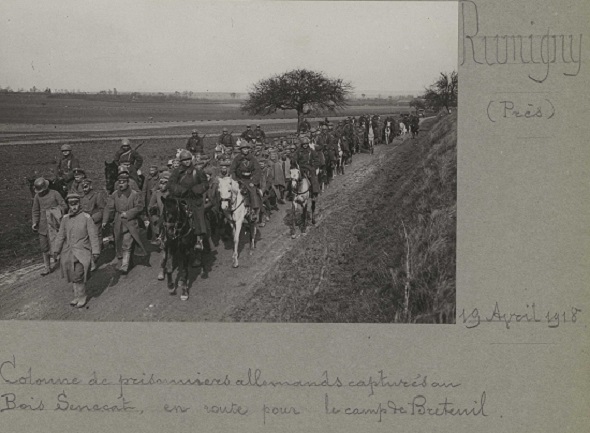 Rumigny
(Près)
19 Avril 1918
Colonne de prisonniers allemands capturés au
Bois Senecat, en route pour le camp de Breteuil.